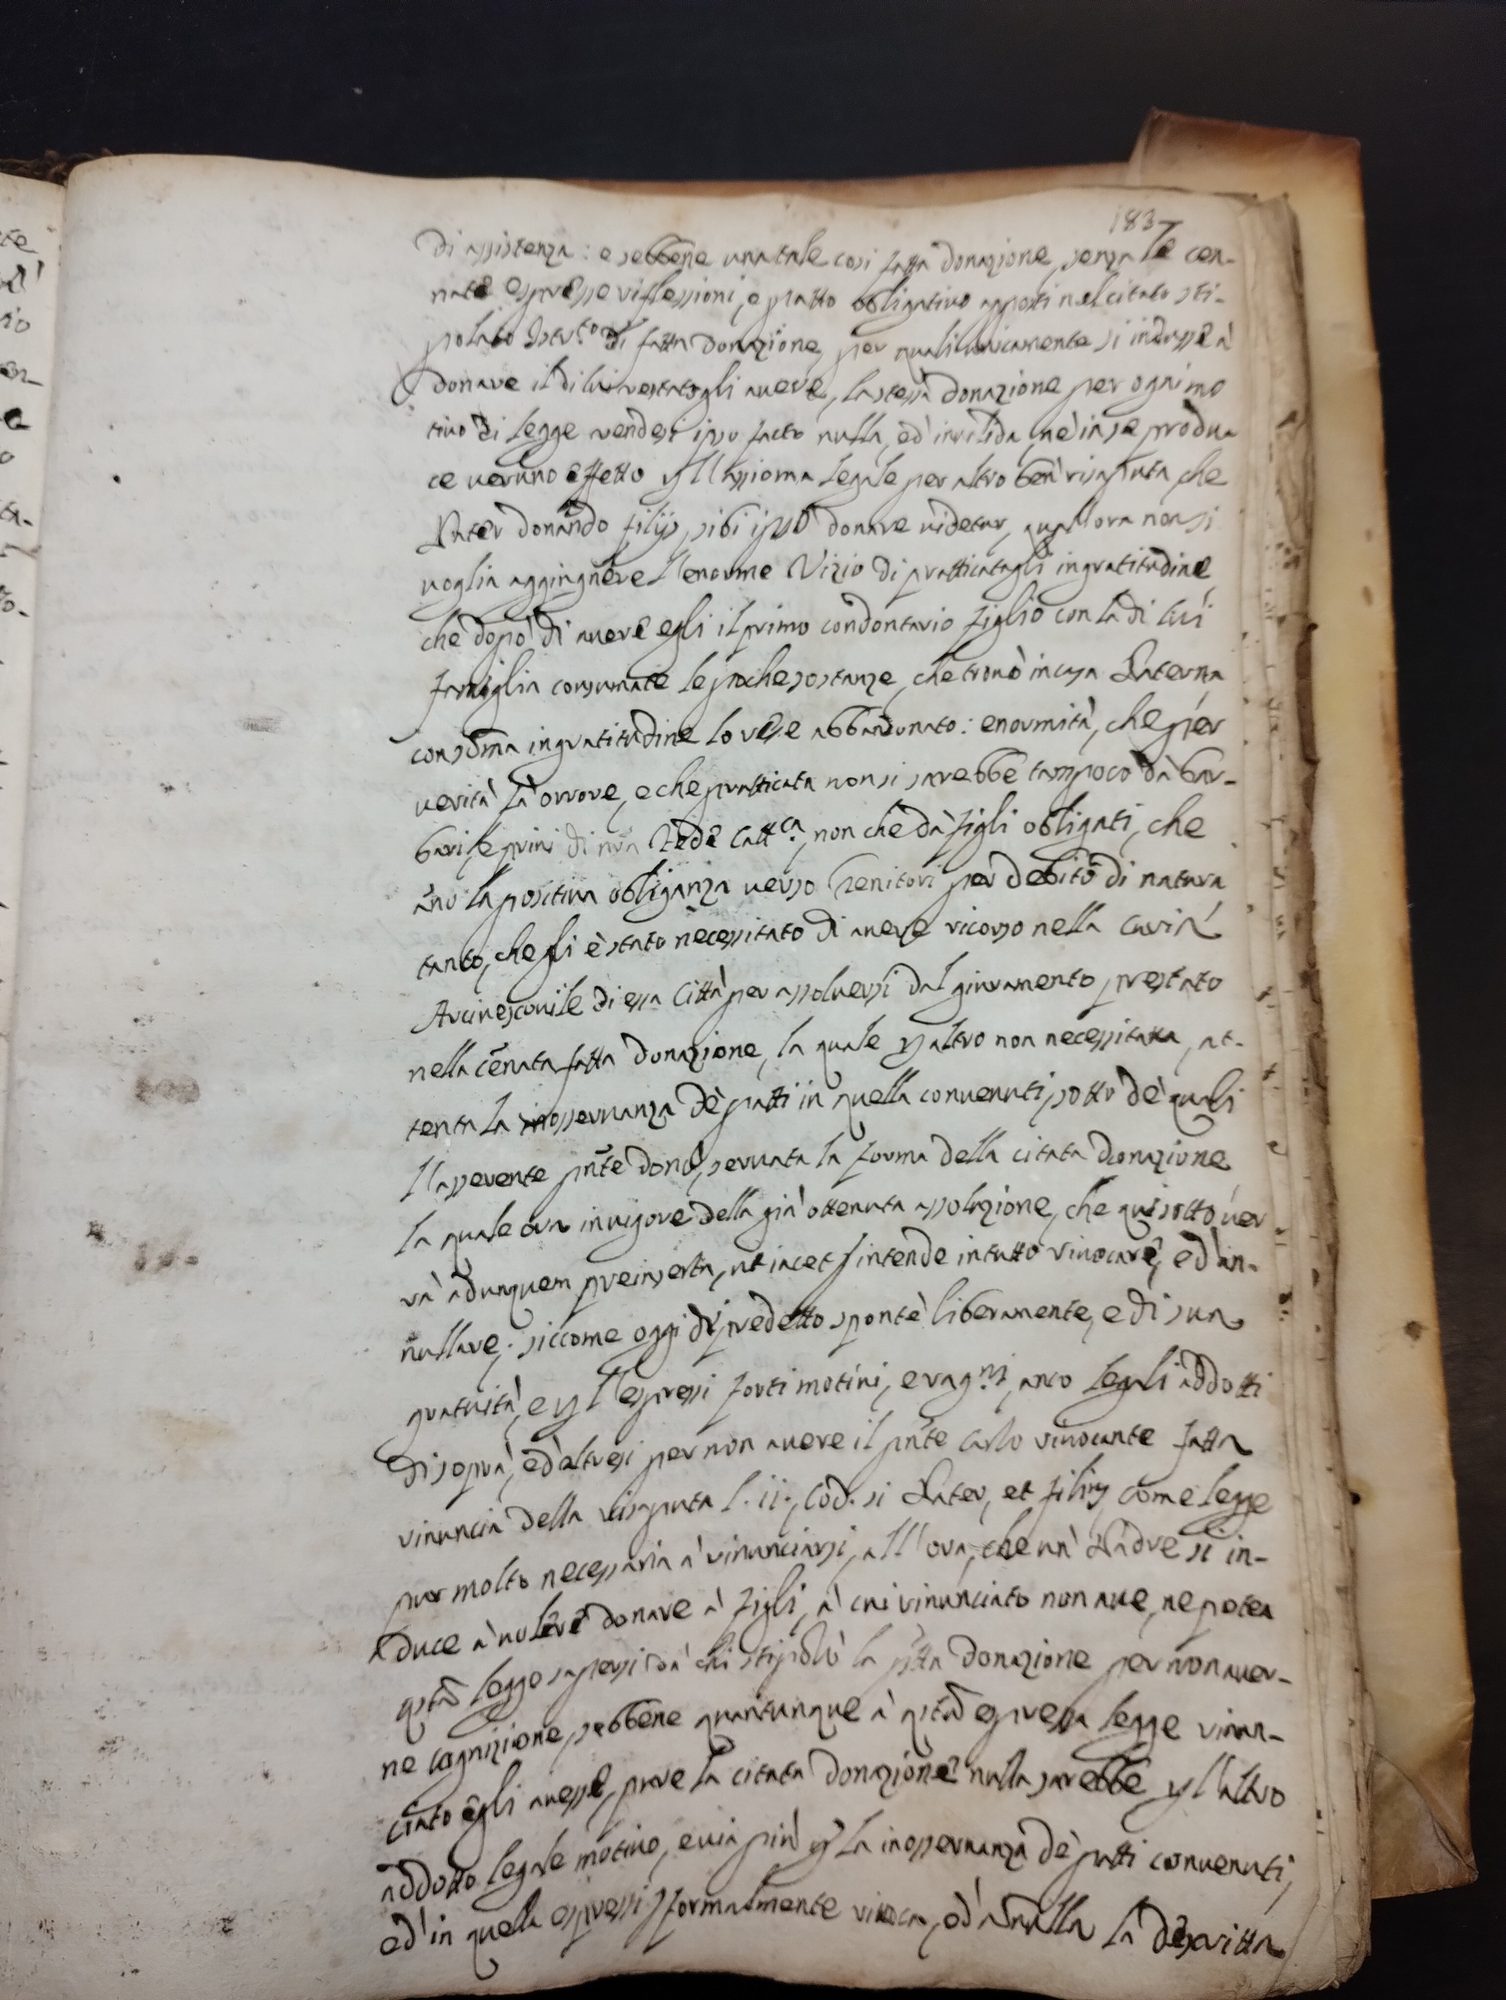 183
di assistenza: e sebbene una tale così fatta donazione, senza le cen-
nate espresse riflessioni, e patto obligativo apposti nel citato sti-
polato Istr.to di fatta donazione, per quali unicamente si indusse à
donare il di lui restatogli avere, la stessa donazione per ogni mo
tivo di legge rendesi ipso facto nulla, ed' invalida, nè in se produ
ce veruno effetto p l'assioma legale per altro ben risaputa che
Pater donando filijs, sibi ipsi donare videtur, quallora non si
voglia aggiugnere l'enorme Vizio di pratticatagli ingratitudine
che dopò di avere egli il primo condontario figlio con la di lui
famiglia consumate le poche sostanze, che trovò in casa Paterna
con somma ingratitudine lo rese abbandonato: enormità, che per
verità fà orrore, e che pratticata non si sarebbe tampoco da bar-
bari, e privi di nra Fede Catt.ca, non che dà figli obligati, che
ano la positiva obliganza verso Genitori per debito di natura
tanto, che gli è stato necessitato di avere ricorso nella Curia
Arcivescovile di essa Città per assolversi dal giuramento prestato
nella cennata fatta donazione, la quale p altro non necessitava, at-
tenta la inosservanza dè patti in quella convenuti, sotto de' quali
l'asserente pnte donò, servata la forma della citata donazione
la quale ora in vigore della già ottenuta assoluzione, che quì sotto ver
rà ad unquem preinserta, ut iacet s'intende in tutto rivocare, ed an-
nullare; siccome oggi dì predetto spontè liberamente, e di sua
gratuità, e p l'espressi forti motivi, e rag.ni, anco legali addotti
di sopra, ed' altresì per non avere il pnte Carlo rivocante fatta
rinuncia della risaputa l. ii., Cod. si Pater, et filius come legge
pur molto necessaria à rinunciarsi, all'ora, che un' Padre si in-
duce à volere donare à figli, à cui rinunciato non ave, ne potea
qsta legge sapersi da chi stipolò la ptta donazione per non aver-
ne cognizione, sebbene quantunque à qsta espressa legge rinun-
ciato egli avesse, pure la citata donazione nulla sarebbe p l'altro
addotto legale motivo, e via più p la inosservanza dè patti convenuti,
ed' in quella espressi, formalmente rivoca, ed' annulla la descritta